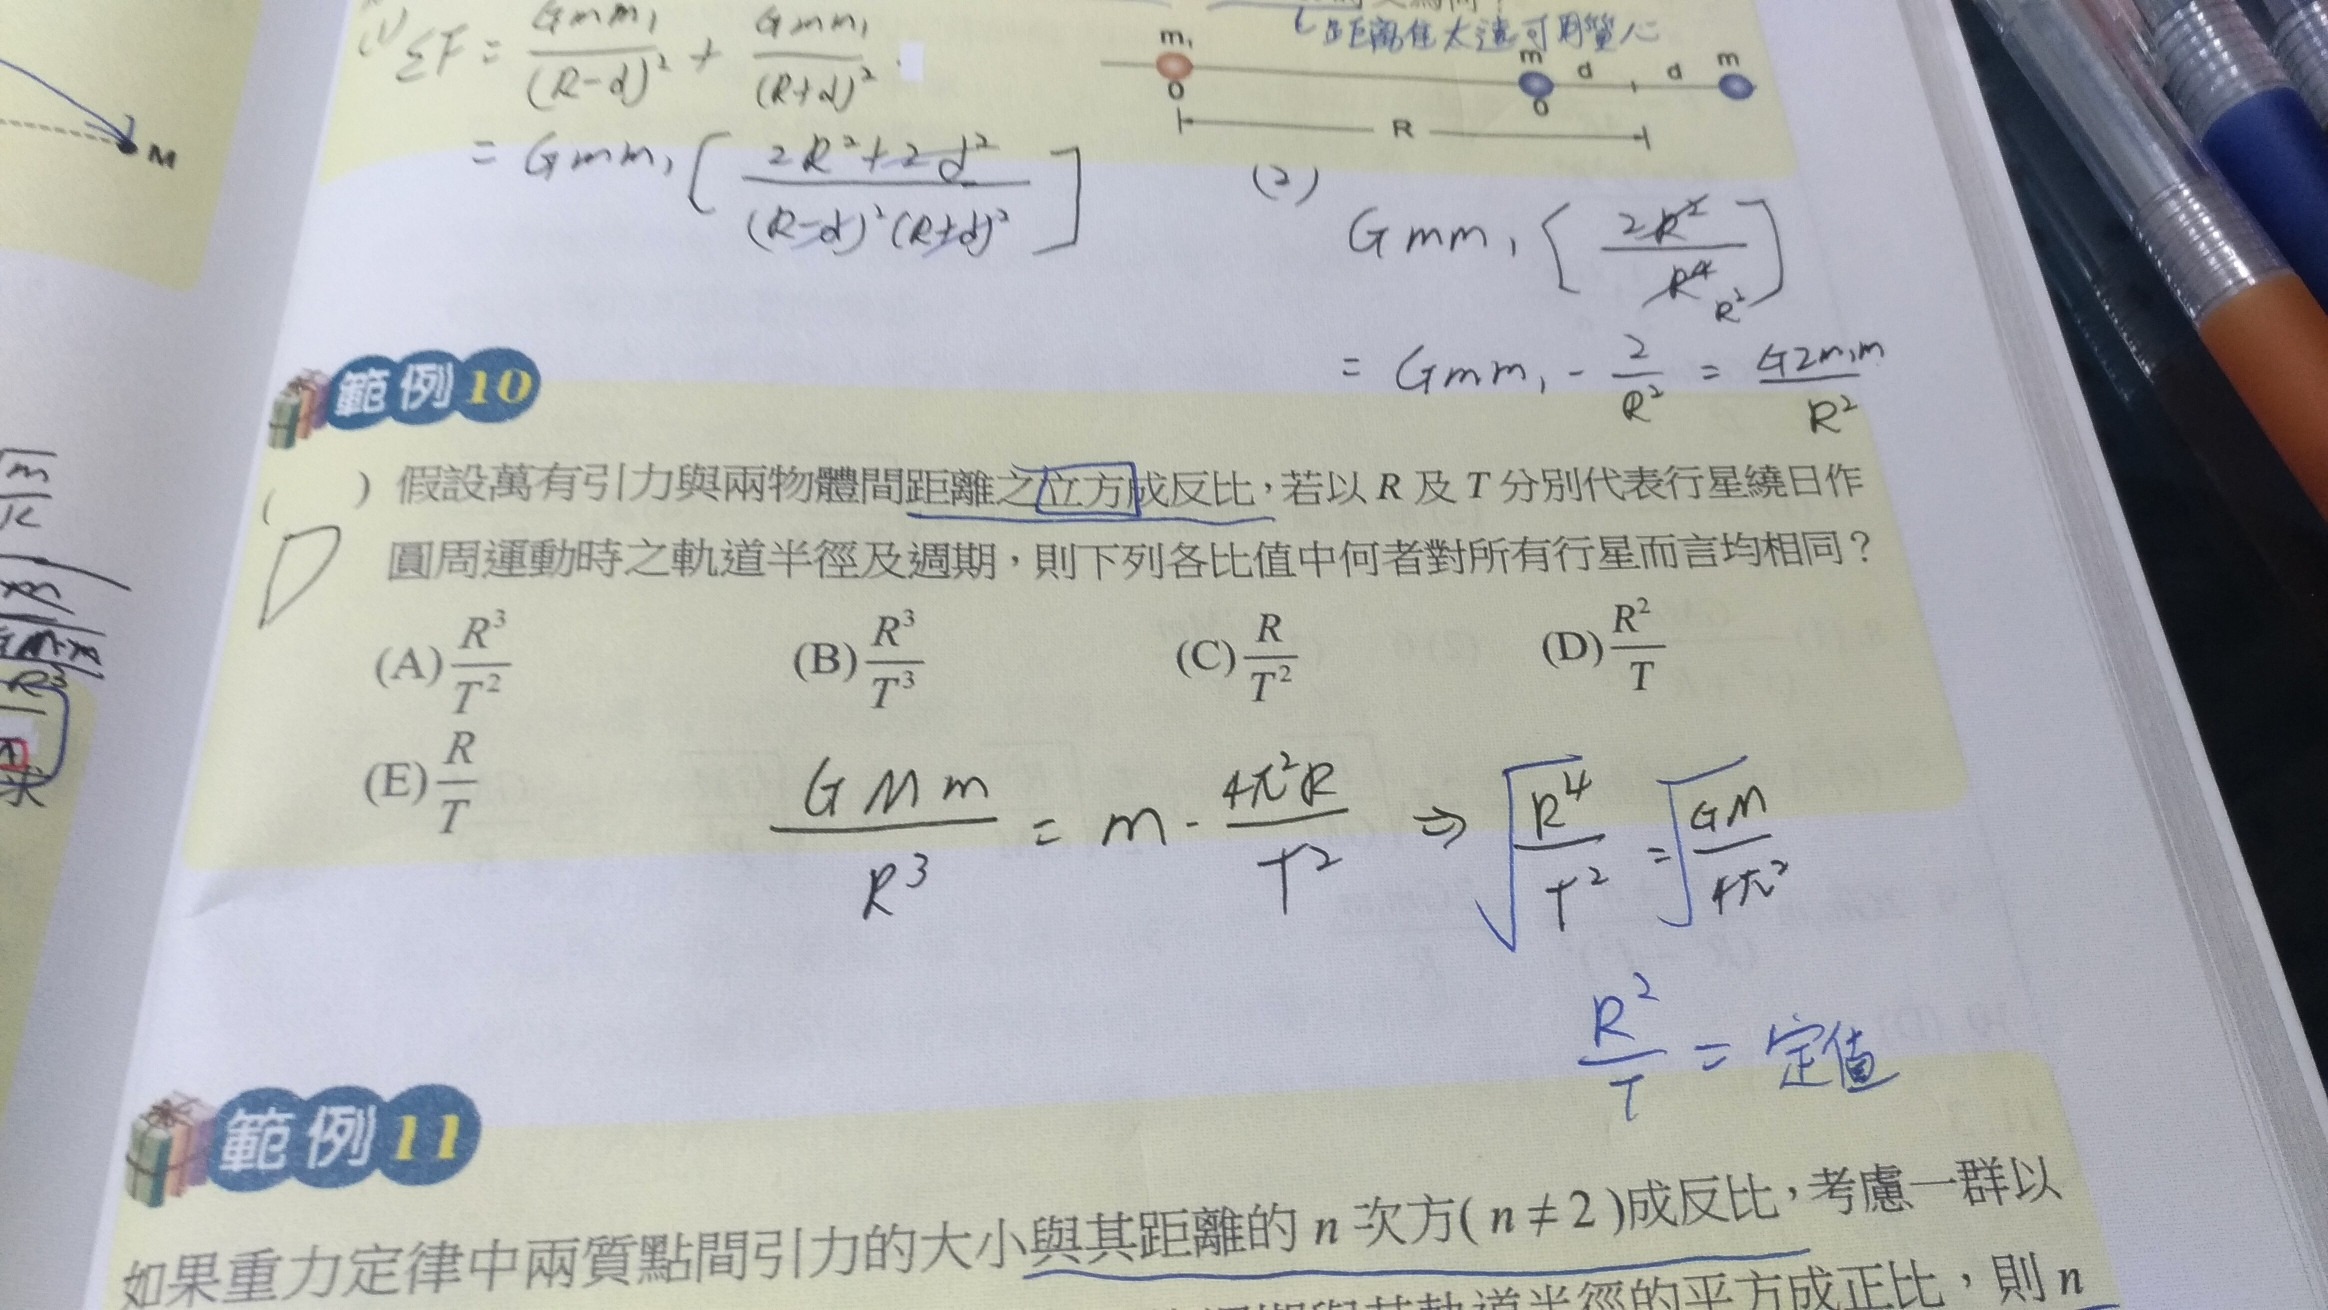 距離隹太遠可用質心
(1) ΣF = Gmm₁/(R-d)² + Gmm₁/(R+d)²
m₁ m d d m
O O
R
M
= Gmm₁ [ 2R²+2d² / (R-d)²(R+d)² ]
(2)
Gmm₁ [ 2R² / R⁴ R² ]
= Gmm₁ - 2/R² = G2m₁m / R²
範例10
( D ) 假設萬有引力與兩物體間距離之立方成反比，若以 R 及 T 分別代表行星繞日作
圓周運動時之軌道半徑及週期，則下列各比值中何者對所有行星而言均相同？
(A) R³/T² (B) R³/T³ (C) R/T² (D) R²/T
(E) R/T
GMm/R³ = m - 4π²R/T² ⇒ √(R⁴/T²) = √(GM/4π²)
R²/T = 定值
範例11
如果重力定律中兩質點間引力的大小與其距離的 n 次方( n ≠ 2 )成反比，考慮一群以
週期與其軌道半徑的平方成正比，則 n